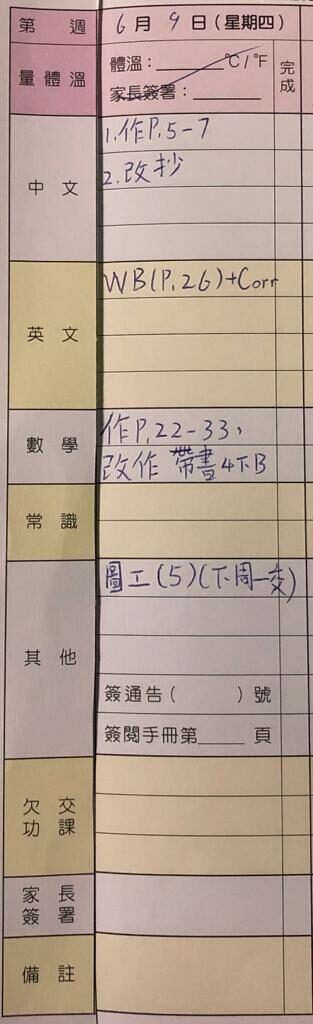 第 週 6月9日(星期四)
量體溫 體溫：______°C/°F 完成
家長簽署：______
中文 1.作P.5-7
2.改抄
英文 WB(P.26)+Corr
數學 作P.22-33，
改作 帶書4下B
常識
其他 圖工(5)(下周一交)
簽通告( )號
簽閱手冊第____頁
欠交功課
家長簽署
備註